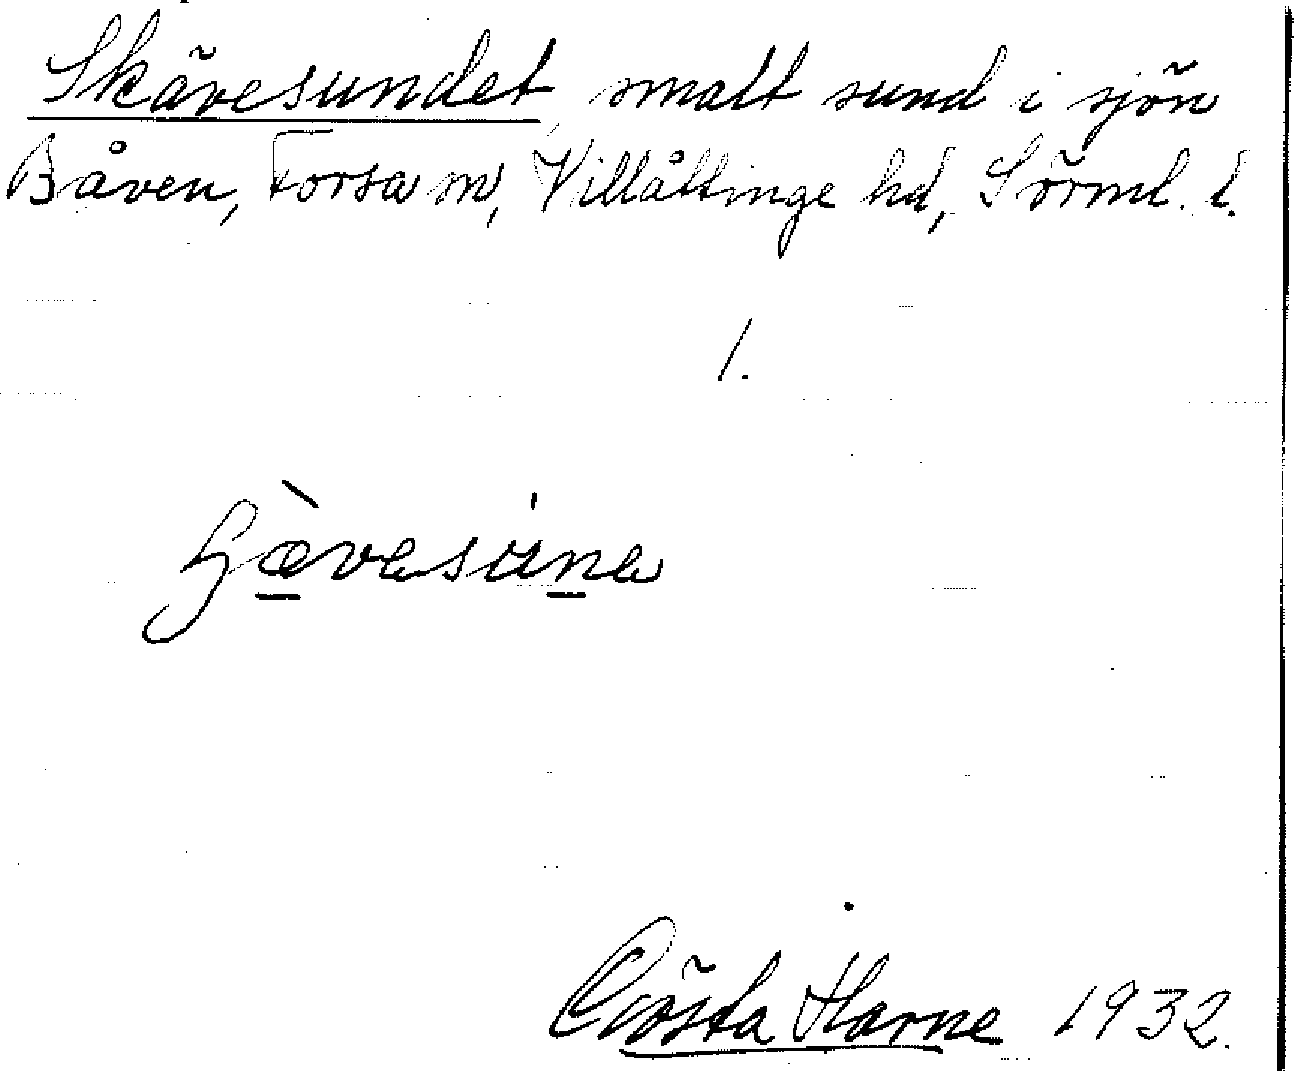 Skävesundet, smalt sund i sjön
Båven, Forsa sn, Villåttinge hd, Sörml. l.
1.
Gösta Harne 1932.